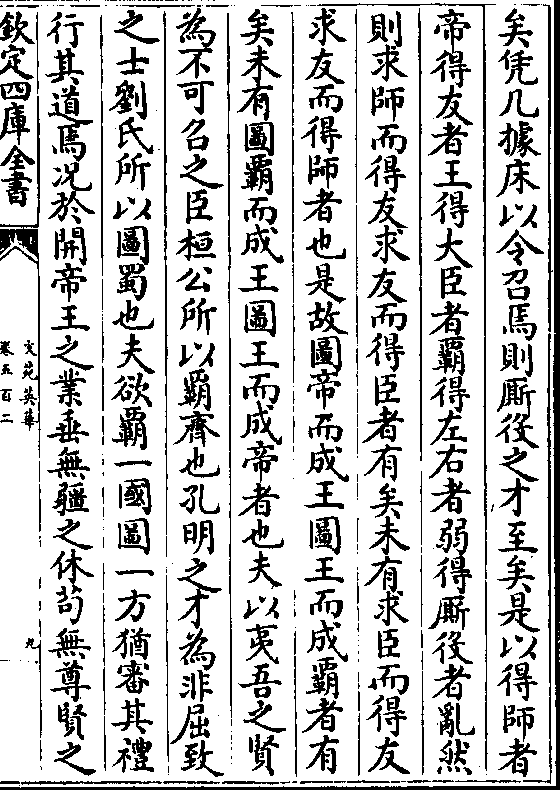 矣凭几據床以令召焉則厮役之才至矣是以得師者
帝得友者王得大臣者覇得左右者弱得厮役者亂然
則求師而得友求友而得臣者有矣未有求臣而得友
求友而得師者也是故圖帝而成王圖王而成覇者有
矣未有圖覇而成王圖王而成帝者也夫以夷吾之賢
為不可召之臣桓公所以覇齊也孔明之才為非屈致
之士劉氏所以圖蜀也夫欲覇一國圖一方猶審其禮
行其道焉况於開帝王之業垂無疆之休苟無尊賢之
欽定四庫全書
文苑英華
卷五百二
九